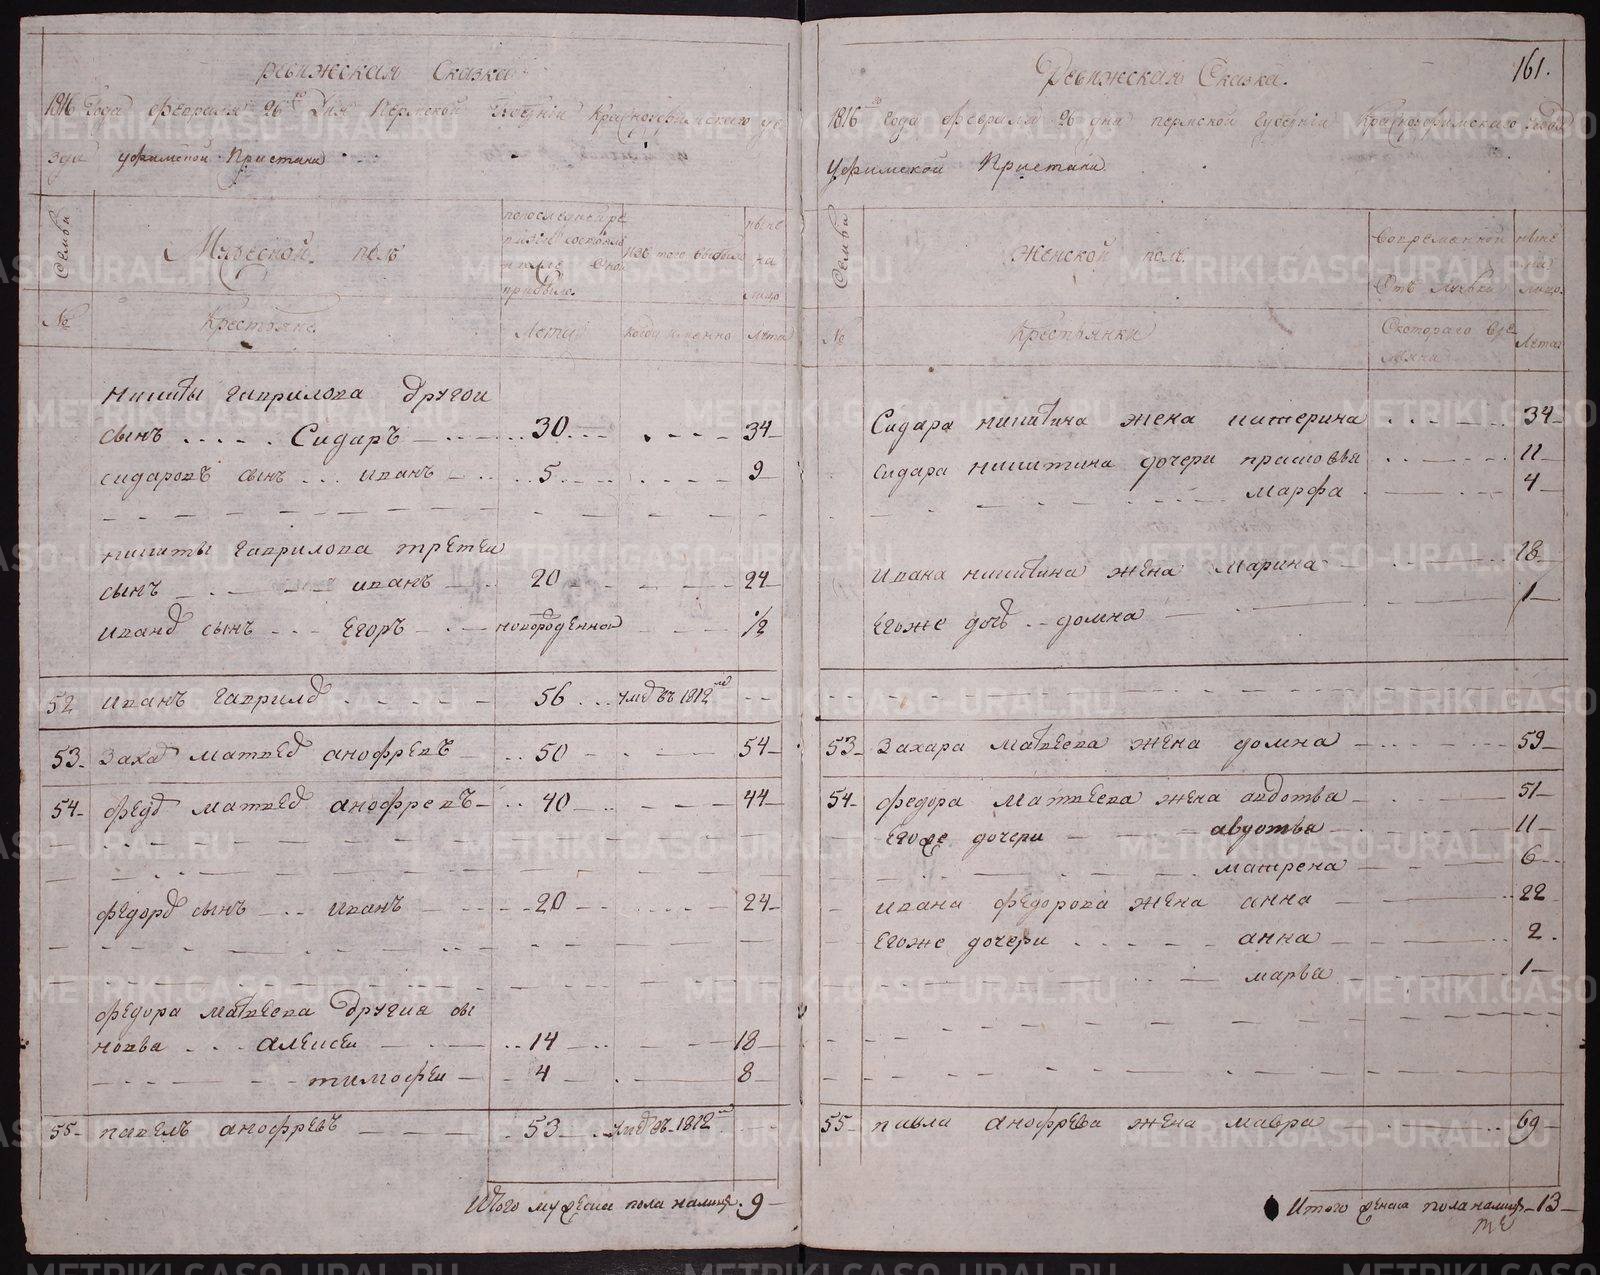 Ревижская Сказка
1816 Года Февраля 26 го Дня Пермской Губернии Красноуфимскаго уе
зда уфимской Пристани
Семьи
Мужеской полъ
Изъ того выбыло
ныне на лицо
№
Крестьяне
Лета
когда имянно
Лета
Никиты Гаврилова другой
сынъ Сидаръ 30 34
Сидаровъ сынъ Иванъ 5 9
Никиты Гаврилова третей
сынъ Иванъ 20 24
Ивано сынъ Егоръ новорожденной 1/2
52 Иванъ Гаврило 56 умеръ въ 1812 мъ
53 Заха Матвео анофревъ 50 54
54 Федо Матвео анофревъ 40 44
Федоро сынъ Иванъ 20 24
Федора Матвеева другия сы
новья алексеи 14 18
тимофеи 4 8
55 павелъ анофревъ 53 умеръ въ 1812 мъ
Итого мужеска пола налицо 9
161.
Ревижская Сказка.
1816 го Года февраля 26 дня пермской Губернии Красноуфимскаго уезда
Уфимской Пристани
Семьи
Женской полъ
Во временной отлучке
ныне на лицо
№
Крестьянки
С котораго вре
мяни
Лета
Сидара никитина жена катерина 34
Сидара никитина дочери прасковья 11
марфа 4
Ивана никитина жена Марина 18
Егоже дочь домна 1
53 Захара Матвеева жена домна 59
54 Федора Матвеева жена авдотья 51
Егоже дочери авдотья 11
матрена 6
Ивана федорова жена анна 22
Егоже дочери анна 2
марья 1
55 павла анофрева жена мавра 69
Итого женска пола налицо 13
те